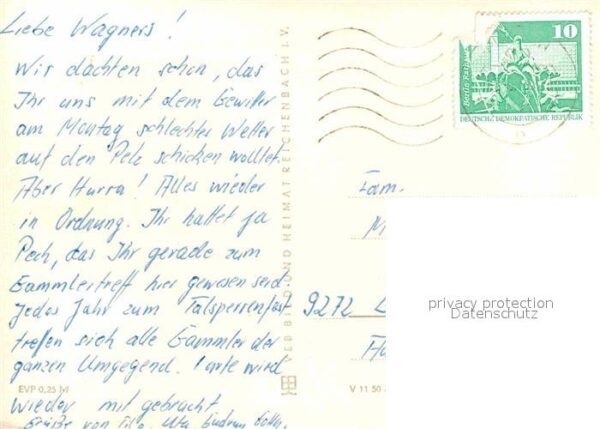 Liebe Wagners !
Wir dachten schon, das
Ihr uns mit dem Gewitter
am Montag schlechter Wetter
auf den Pelz schicken wolltet.
Aber Hurra! Alles wieder
in Ordnung. Ihr hattet ja
Pech, das Ihr gerade zum
Sammlertreff hier gewesen seid.
Jedes Jahr zum Talsperrenfest
treffen sich alle Sammler der
ganzen Umgegend. Karte wird
wieder mit gebracht
Grüße von Uta Gudrun
EVP 0,25 M
VEB BILD UND HEIMAT REICHENBACH i. V.
V 11 50
10
Berlin
DEUTSCHE DEMOKRATISCHE REPUBLIK
Fam.
9272
privacy protection
Datenschutz